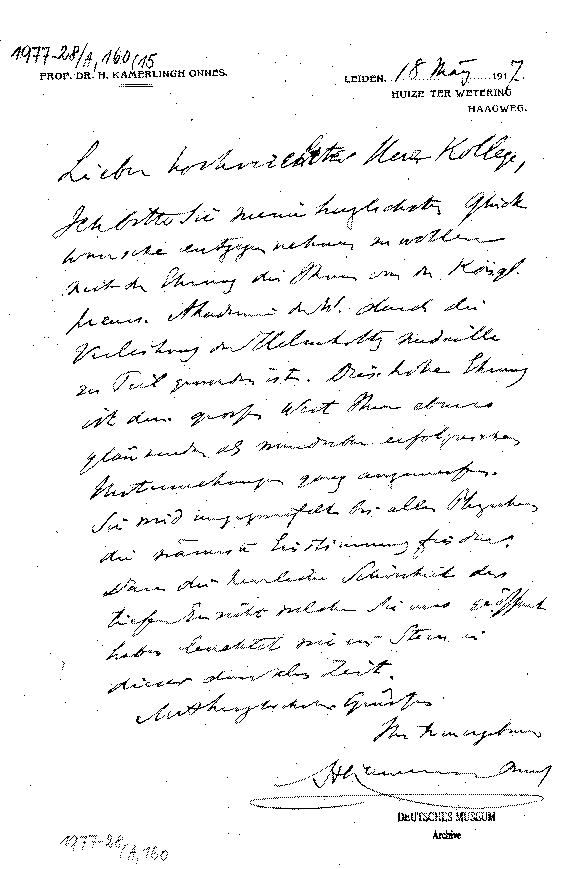 1977-28/A,160/15
PROF. DR. H. KAMERLINGH ONNES.
LEIDEN. 18 März 1917.
HUIZE TER WETERING
HAAGWEG.
Lieber hochverehrter Herr Kollege,
Ich bitte Sie meine herzlichsten Glück
wünsche entgegen nehmen zu wollen
mit der Ehrung die Ihnen von der Königl.
preuss. Akademie d. W. durch die
Verleihung der Helmholtz medaille
zu Teil geworden ist. Diese hohe Ehrung
ist dem grossen Wert Ihrer ebenso
glänzenden als wunderbar erfolgreichen
Untersuchungen ganz angemessen.
Sie wird ungezweifelt bei allen Physikern
die wärmste Zustimmung finden.
Denn die herrliche Schönheit der
tiefen Einsicht welche Sie uns geöffnet
haben leuchtet wie ein Stern in
dieser dunklen Zeit.
Mit herzlichen Grüssen
Ihr treu ergebener
H Kamerlingh Onnes
DEUTSCHES MUSEUM
Archive
1977-28/A,160